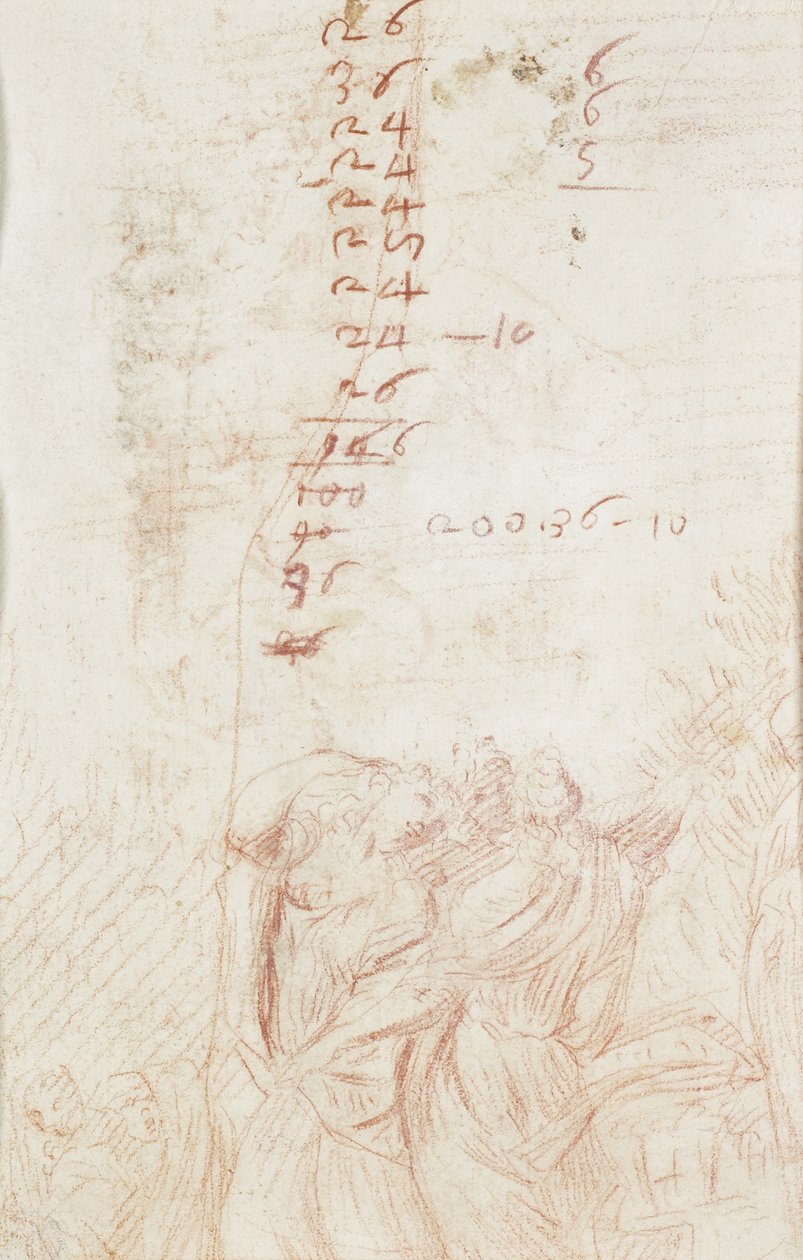 26
36
24
24
24
25
24
24 – 10
26
146
100
40
36
6
6
5
20036 – 10